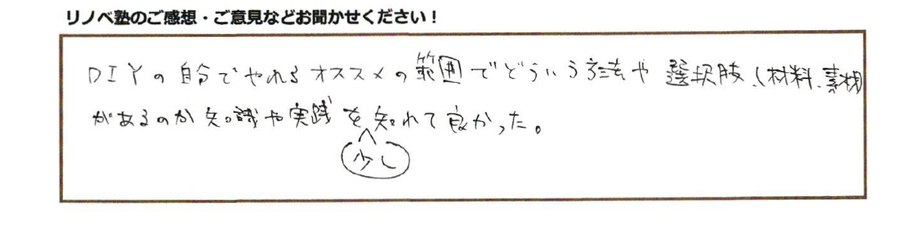 リノベ塾のご感想・ご意見などお聞かせください！
DIYの自分でやれるオススメの範囲でどういう方法や選択肢、(材料、素材)
があるのか知識や実践を少し知れて良かった。